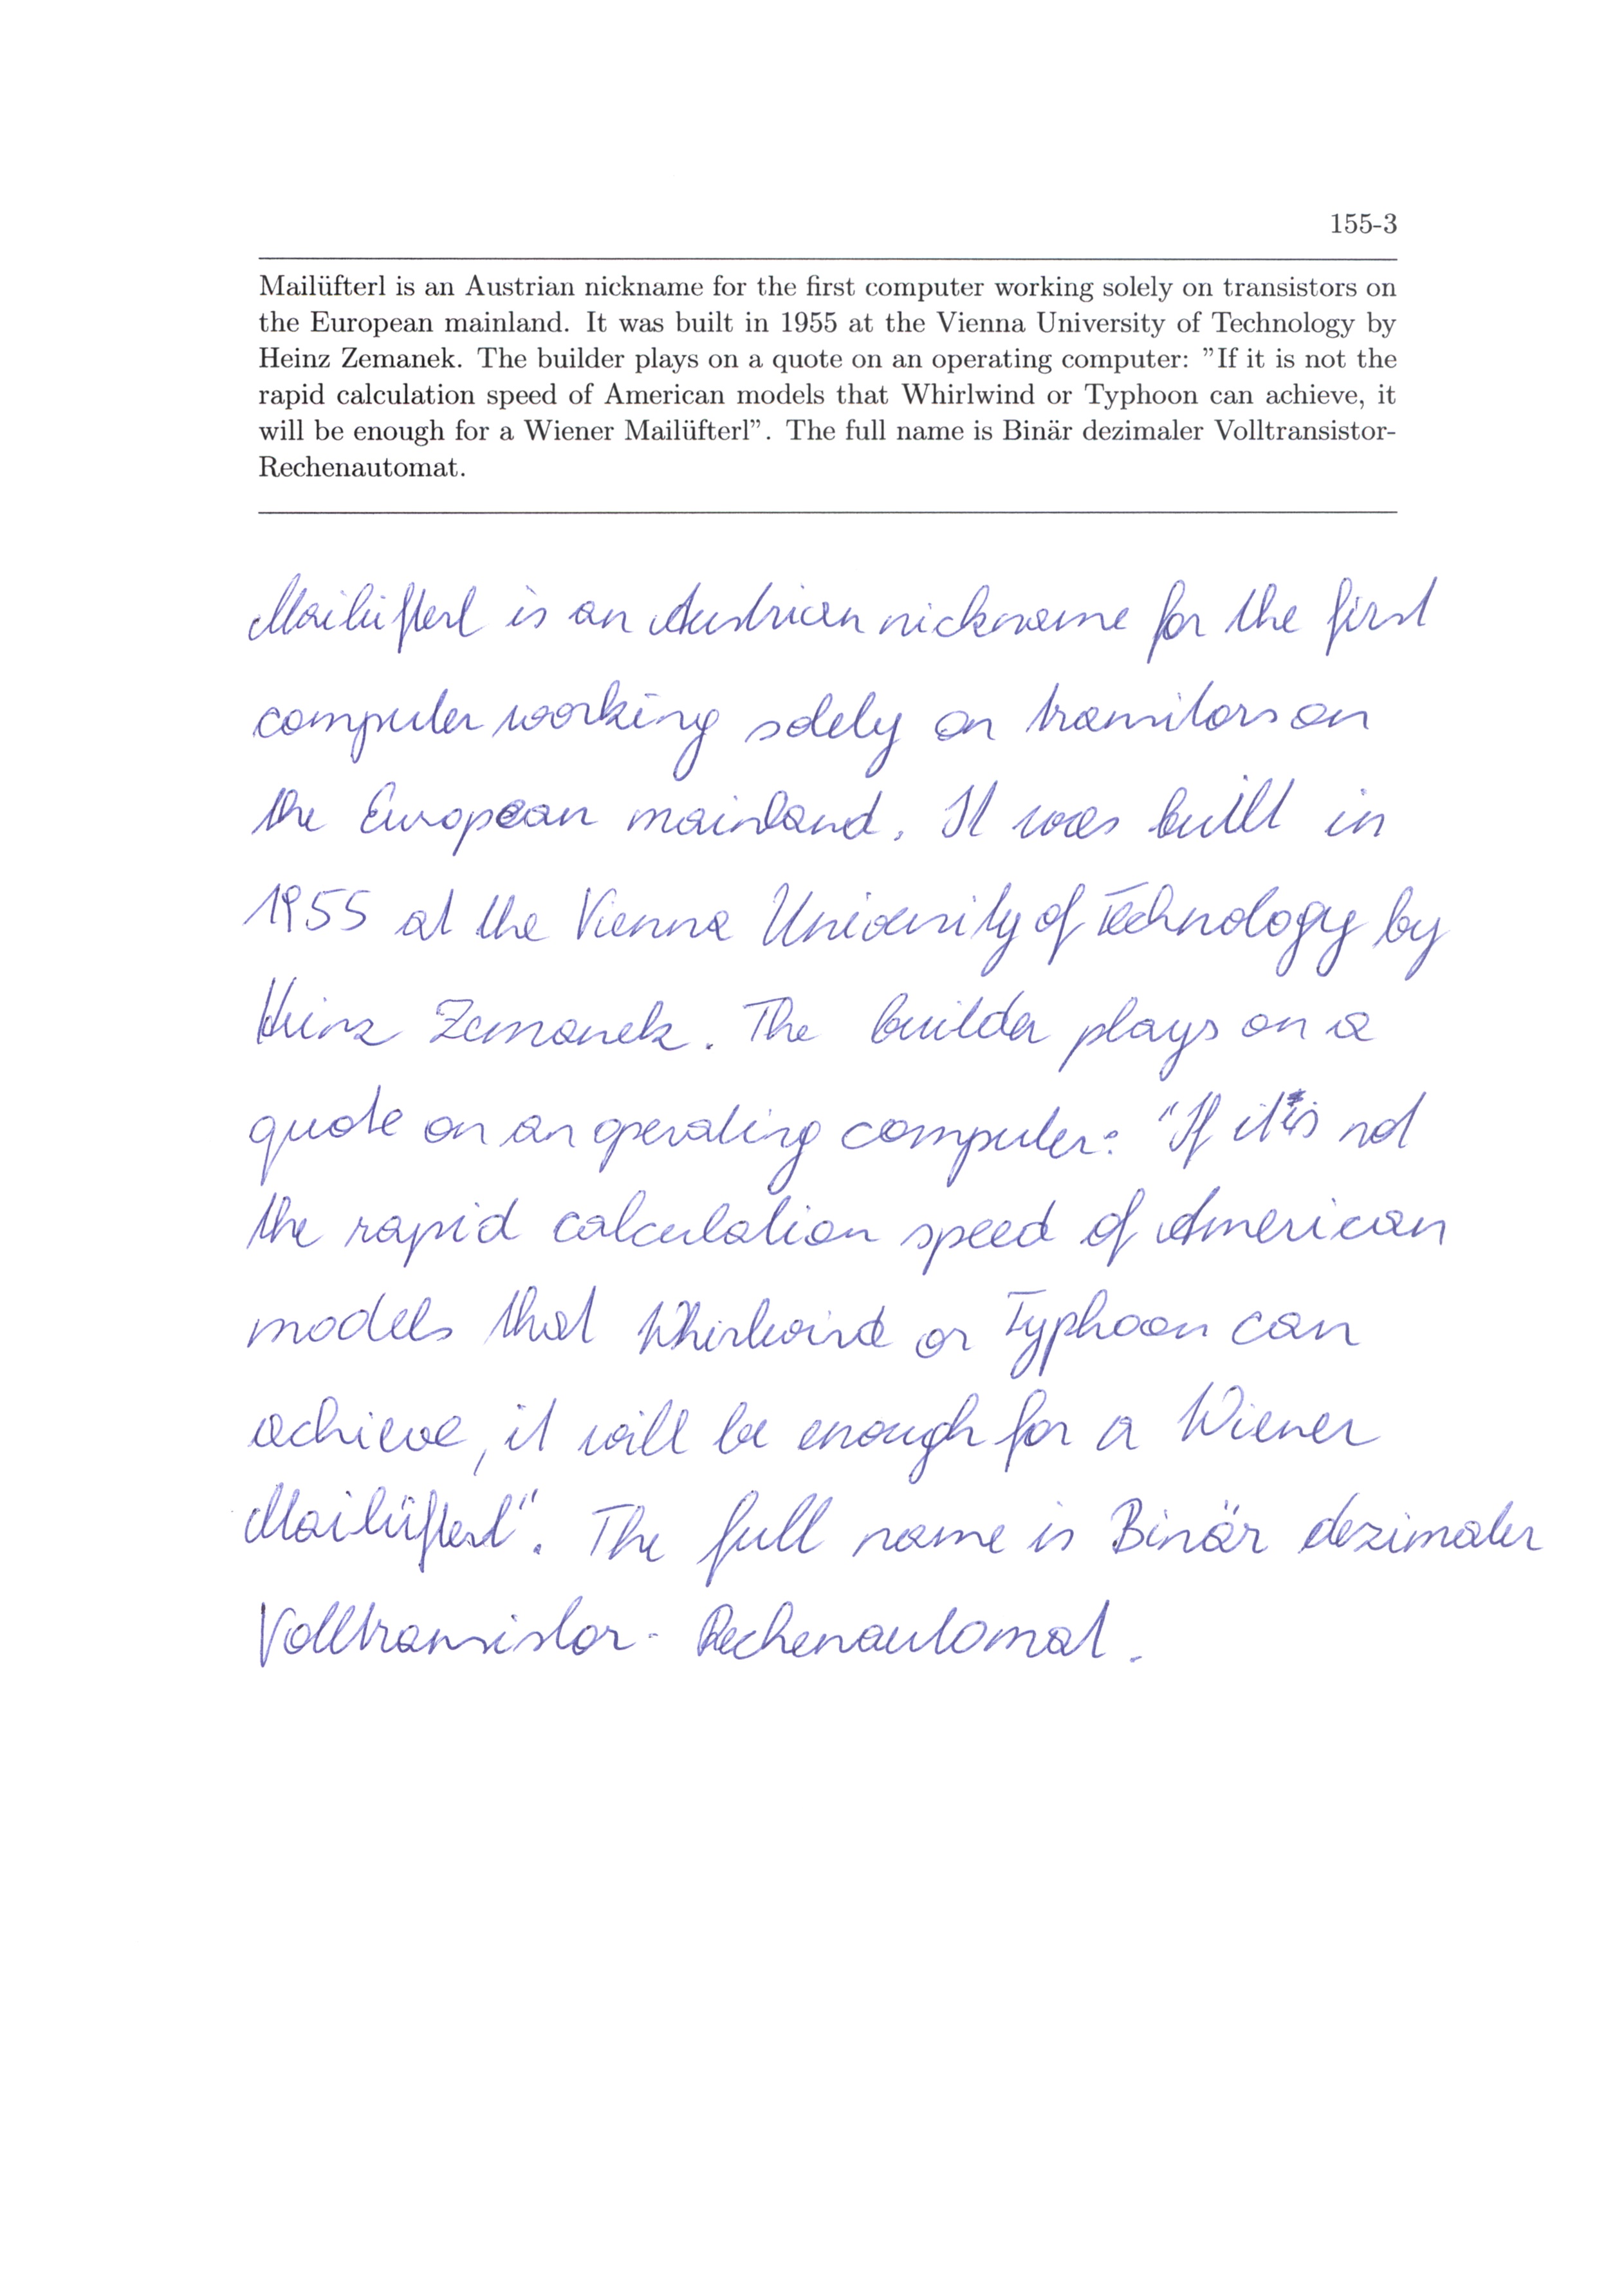 155-3
Mailüfterl is an Austrian nickname for the first computer working solely on transistors on
the European mainland. It was built in 1955 at the Vienna University of Technology by
Heinz Zemanek. The builder plays on a quote on an operating computer: "If it is not the
rapid calculation speed of American models that Whirlwind or Typhoon can achieve, it
will be enough for a Wiener Mailüfterl". The full name is Binär dezimaler Volltransistor-
Rechenautomat.
Mailüfterl is an Austrian nickname for the first
computer working solely on transitors on
the European mainland. It was built in
1955 at the Vienna University of Technology by
Heinz Zemanek. The builder plays on a
quote on an operating computer: "If it is not
the rapid calculation speed of American
models that Whirlwind or Typhoon can
achieve, it will be enough for a Wiener
Mailüfterl". The full name is Binär dezimaler
Volltransistor- Rechenautomat.